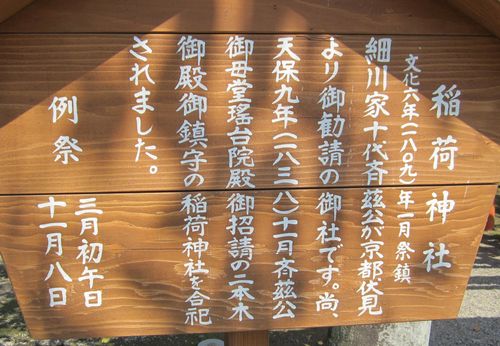 稲荷神社
文化六年(一八〇九)年一月祭鎮
細川家十代斉茲公が京都伏見
より御勧請の御社です。尚、
天保九年(一八三八)十一月斉茲公
御母堂瑶台院殿御招請の二本木
御殿御鎮守の稲荷神社を合祀
されました。
例祭
三月初午日
十一月八日